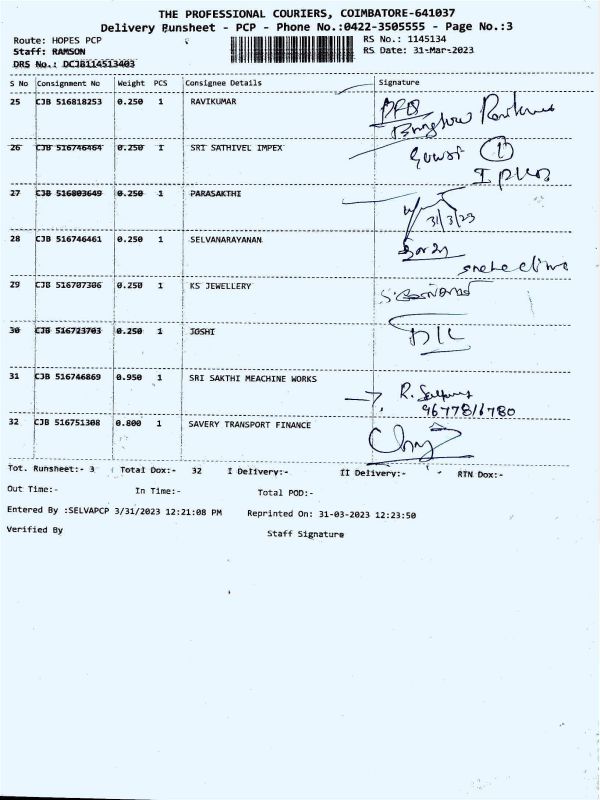 THE PROFESSIONAL COURIERS, COIMBATORE-641037
Delivery Runsheet - PCP - Phone No.:0422-3505555 - Page No.:3
Route: HOPES PCP RS No.: 1145134
Staff: RAMSON RS Date: 31-Mar-2023
DRS No.: DCJB114513403
S No Consignment No Weight PCS Consignee Details Signature
25 CJB 516818253 0.250 1 RAVIKUMAR
26 CJB 516746464 0.250 1 SRI SATHIVEL IMPEX
27 CJB 516803649 0.250 1 PARASAKTHI
31/3/23
28 CJB 516746461 0.250 1 SELVANARAYANAN
29 CJB 516707306 0.250 1 KS JEWELLERY
30 CJB 516723703 0.250 1 JOSHI
31 CJB 516746869 0.950 1 SRI SAKTHI MEACHINE WORKS
R.
9677816780
32 CJB 516751308 0.800 1 SAVERY TRANSPORT FINANCE
Tot. Runsheet:- 3 Total Dox:- 32 I Delivery:- II Delivery:- RTN Dox:-
Out Time:- In Time:- Total POD:-
Entered By :SELVAPCP 3/31/2023 12:21:08 PM Reprinted On: 31-03-2023 12:23:50
Verified By Staff Signature